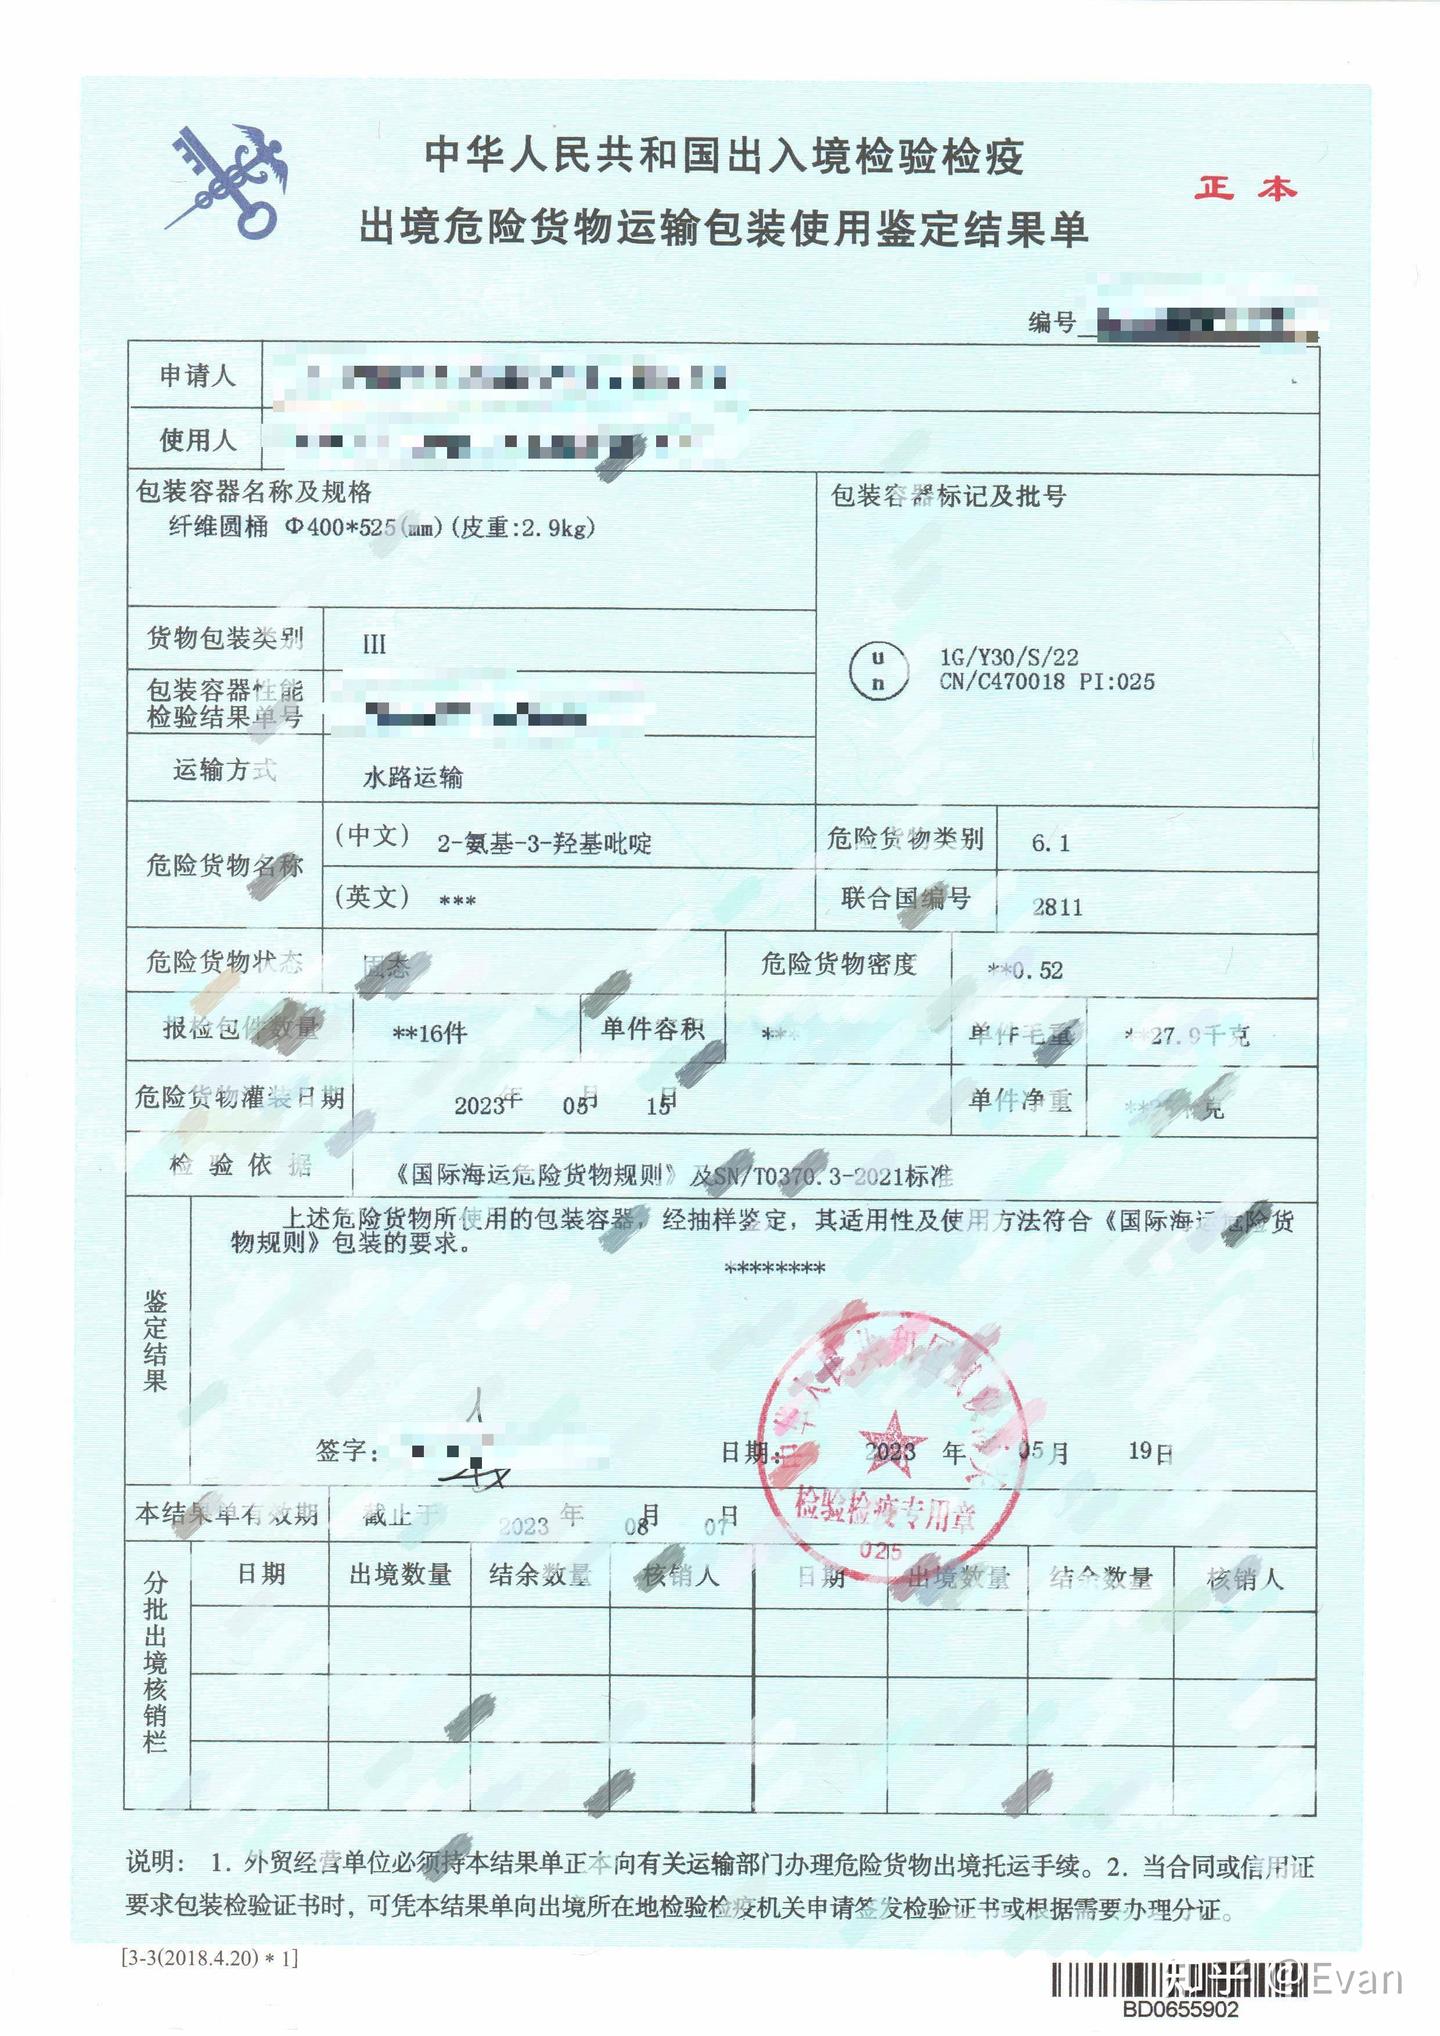 中华人民共和国出入境检验检疫
正本
出境危险货物运输包装使用鉴定结果单
编号
申请人
使用人
包装容器名称及规格
纤维圆桶 Φ400*525(mm)(皮重:2.9kg)
包装容器标记及批号
货物包装类别 III
un 1G/Y30/S/22
CN/C470018 PI:025
包装容器性能
检验结果单号
运输方式 水路运输
危险货物名称 (中文) 2-氨基-3-羟基吡啶 危险货物类别 6.1
(英文) *** 联合国编号 2811
危险货物状态 固态 危险货物密度 **0.52
报检包件数量 **16件 单件容积 *** 单件毛重 **27.9千克
危险货物灌装日期 2023年 05月 15日 单件净重 克
检验依据 《国际海运危险货物规则》及SN/T0370.3-2021标准
鉴定结果
上述危险货物所使用的包装容器，经抽样鉴定，其适用性及使用方法符合《国际海运危险货
物规则》包装的要求。
********
签字： 日期： 2023 年 05月 19日
中华人民共和国
检验检疫专用章
025
本结果单有效期 截止于 2023 年 08月 07日
分批出境核销栏
日期 出境数量 结余数量 核销人 日期 出境数量 结余数量 核销人
说明： 1. 外贸经营单位必须持本结果单正本向有关运输部门办理危险货物出境托运手续。2. 当合同或信用证
要求包装检验证书时，可凭本结果单向出境所在地检验检疫机关申请签发检验证书或根据需要办理分证。
[3-3(2018.4.20) * 1]
知乎 @Evan
BD0655902